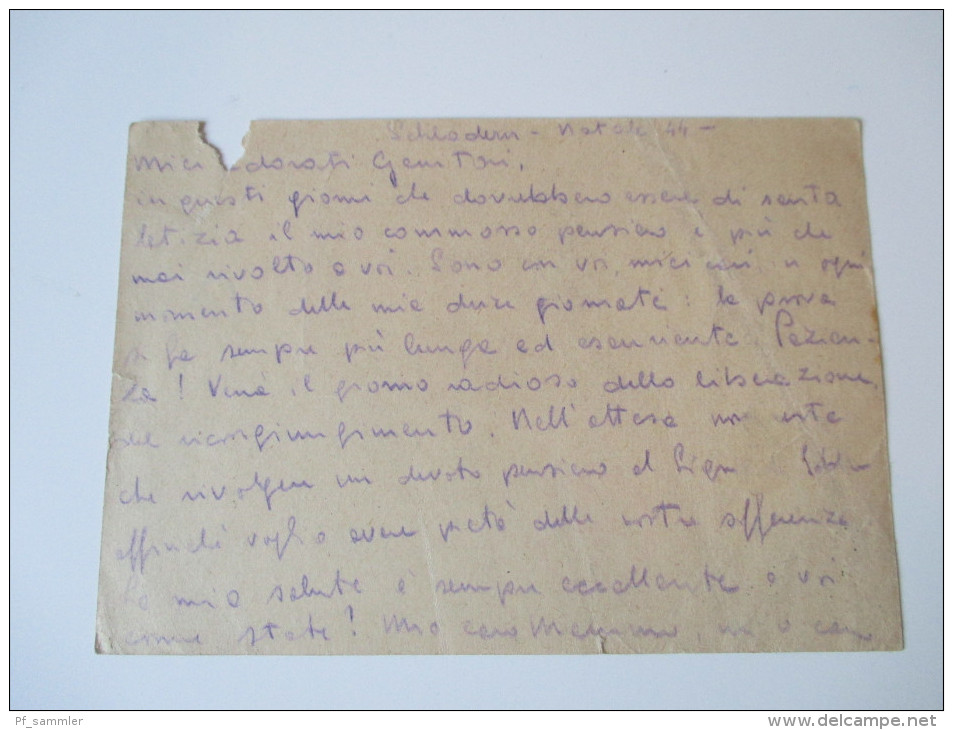 Natale 44 -
Miei adorati Genitori,
in questi giorni che dovrebbero essere di santa
letizia il mio commosso pensiero è più che
mai rivolto a voi. Sono con voi, miei cari in ogni
momento delle mie dure giornate: la prova
si fa sempre più lunga ed esauriente. Pazien-
za! Verrà il giorno radioso della liberazione,
del ricongiungimento. Nell'attesa non resta
che rivolgere un devoto pensiero al
affinché voglia avere pietà delle nostre sofferenze
La mia salute è sempre eccellente e voi
come state! Mio caro
Pf_sammler
www.delcampe.net